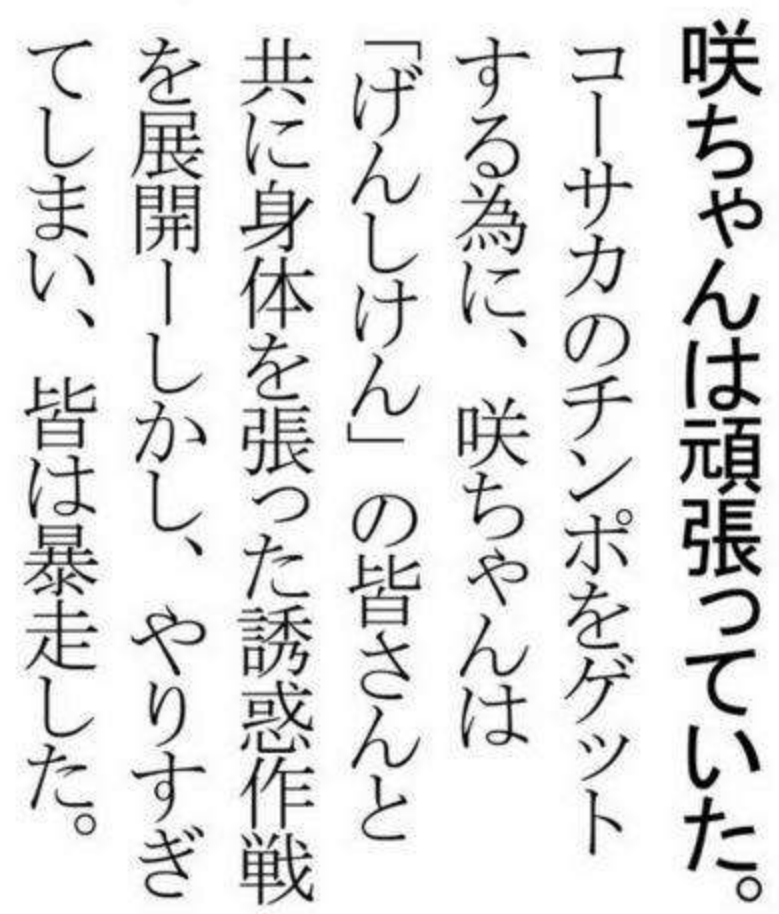 咲ちゃんは頑張っていた。
コーサカのチンポをゲット
する為に、咲ちゃんは
「げんしけん」の皆さんと
共に身体を張った誘惑作戦
を展開ーしかし、やりすぎ
てしまい、皆は暴走した。